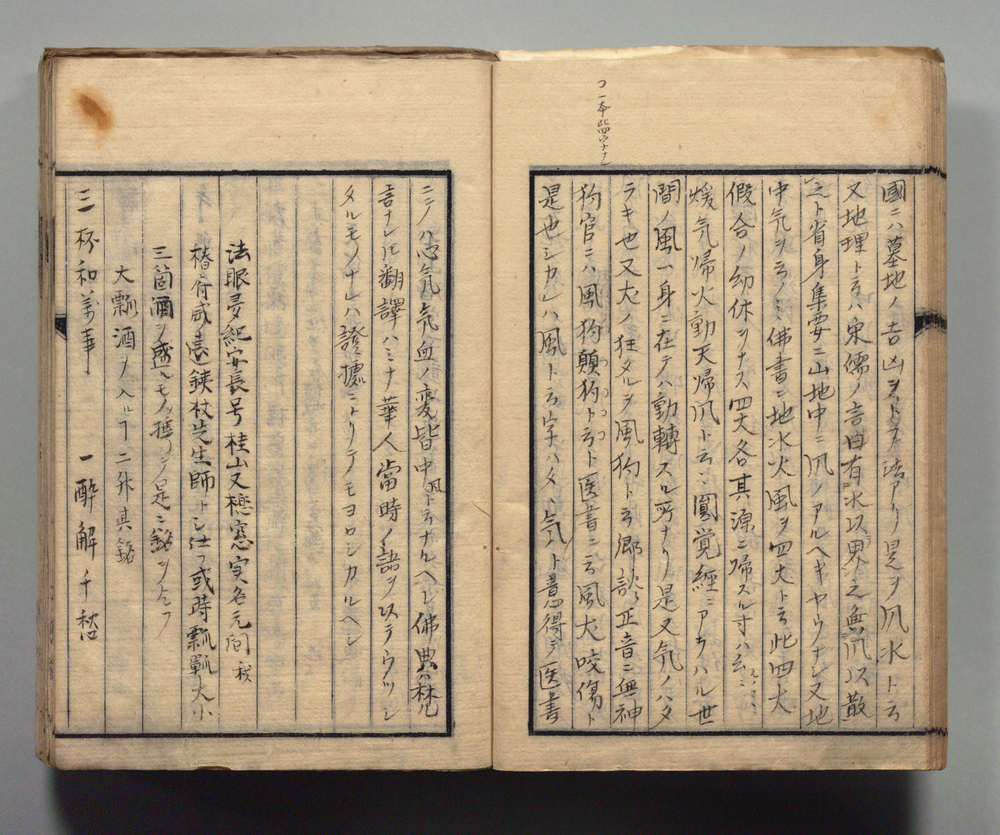 國ニハ墓地ノ吉凶ヲ法アリ是ヲ風水ト云
又地理ト云ハ宋儒ノ言自有水以界之無風以散
之ト省身集要ニ山地中ニ風ノアルヘキヤウナシ又地
中気ヲ云ノミ佛書ニ地水火風ヲ四大ト云此四大
假合ノ幼休ヲナス四大各其源ニ帰スル寸ハ
煖気帰火動天帰風ト云圓覚經ニアラハル世
間ノ風一身ニ在テハ動轉スル所ナリ是又気ノハタ
ラキ也又犬ノ狂タルヲ風狗ト云郷談正音ニ無神
狗官ニハ風狗顛狗ト云ト医書ニ云風犬咬傷ト
是也シカレハ風ト云字ハタヽ気ト意得テ医書
一本此四字ナシ
ニテハ心気気血ノ変皆中風ト云ナルヘシ佛典ハ梵
言ナレ𪜈翻譯ハミナ華人當時ノ語ヲ以テウツシ
タルモノナレハ證據ニトリテモヨロシカルヘシ
法眼安長号桂山又懋窓実名元簡
長鋏杖先生師トシ仕フ或時瓢瓢大小
三箇酒ヲ盛ヘモノヲ携フ是ニ銘ヲ
大瓢酒ヲ入ルヿ二升其銘
三杯和萬事 一酔解千愁